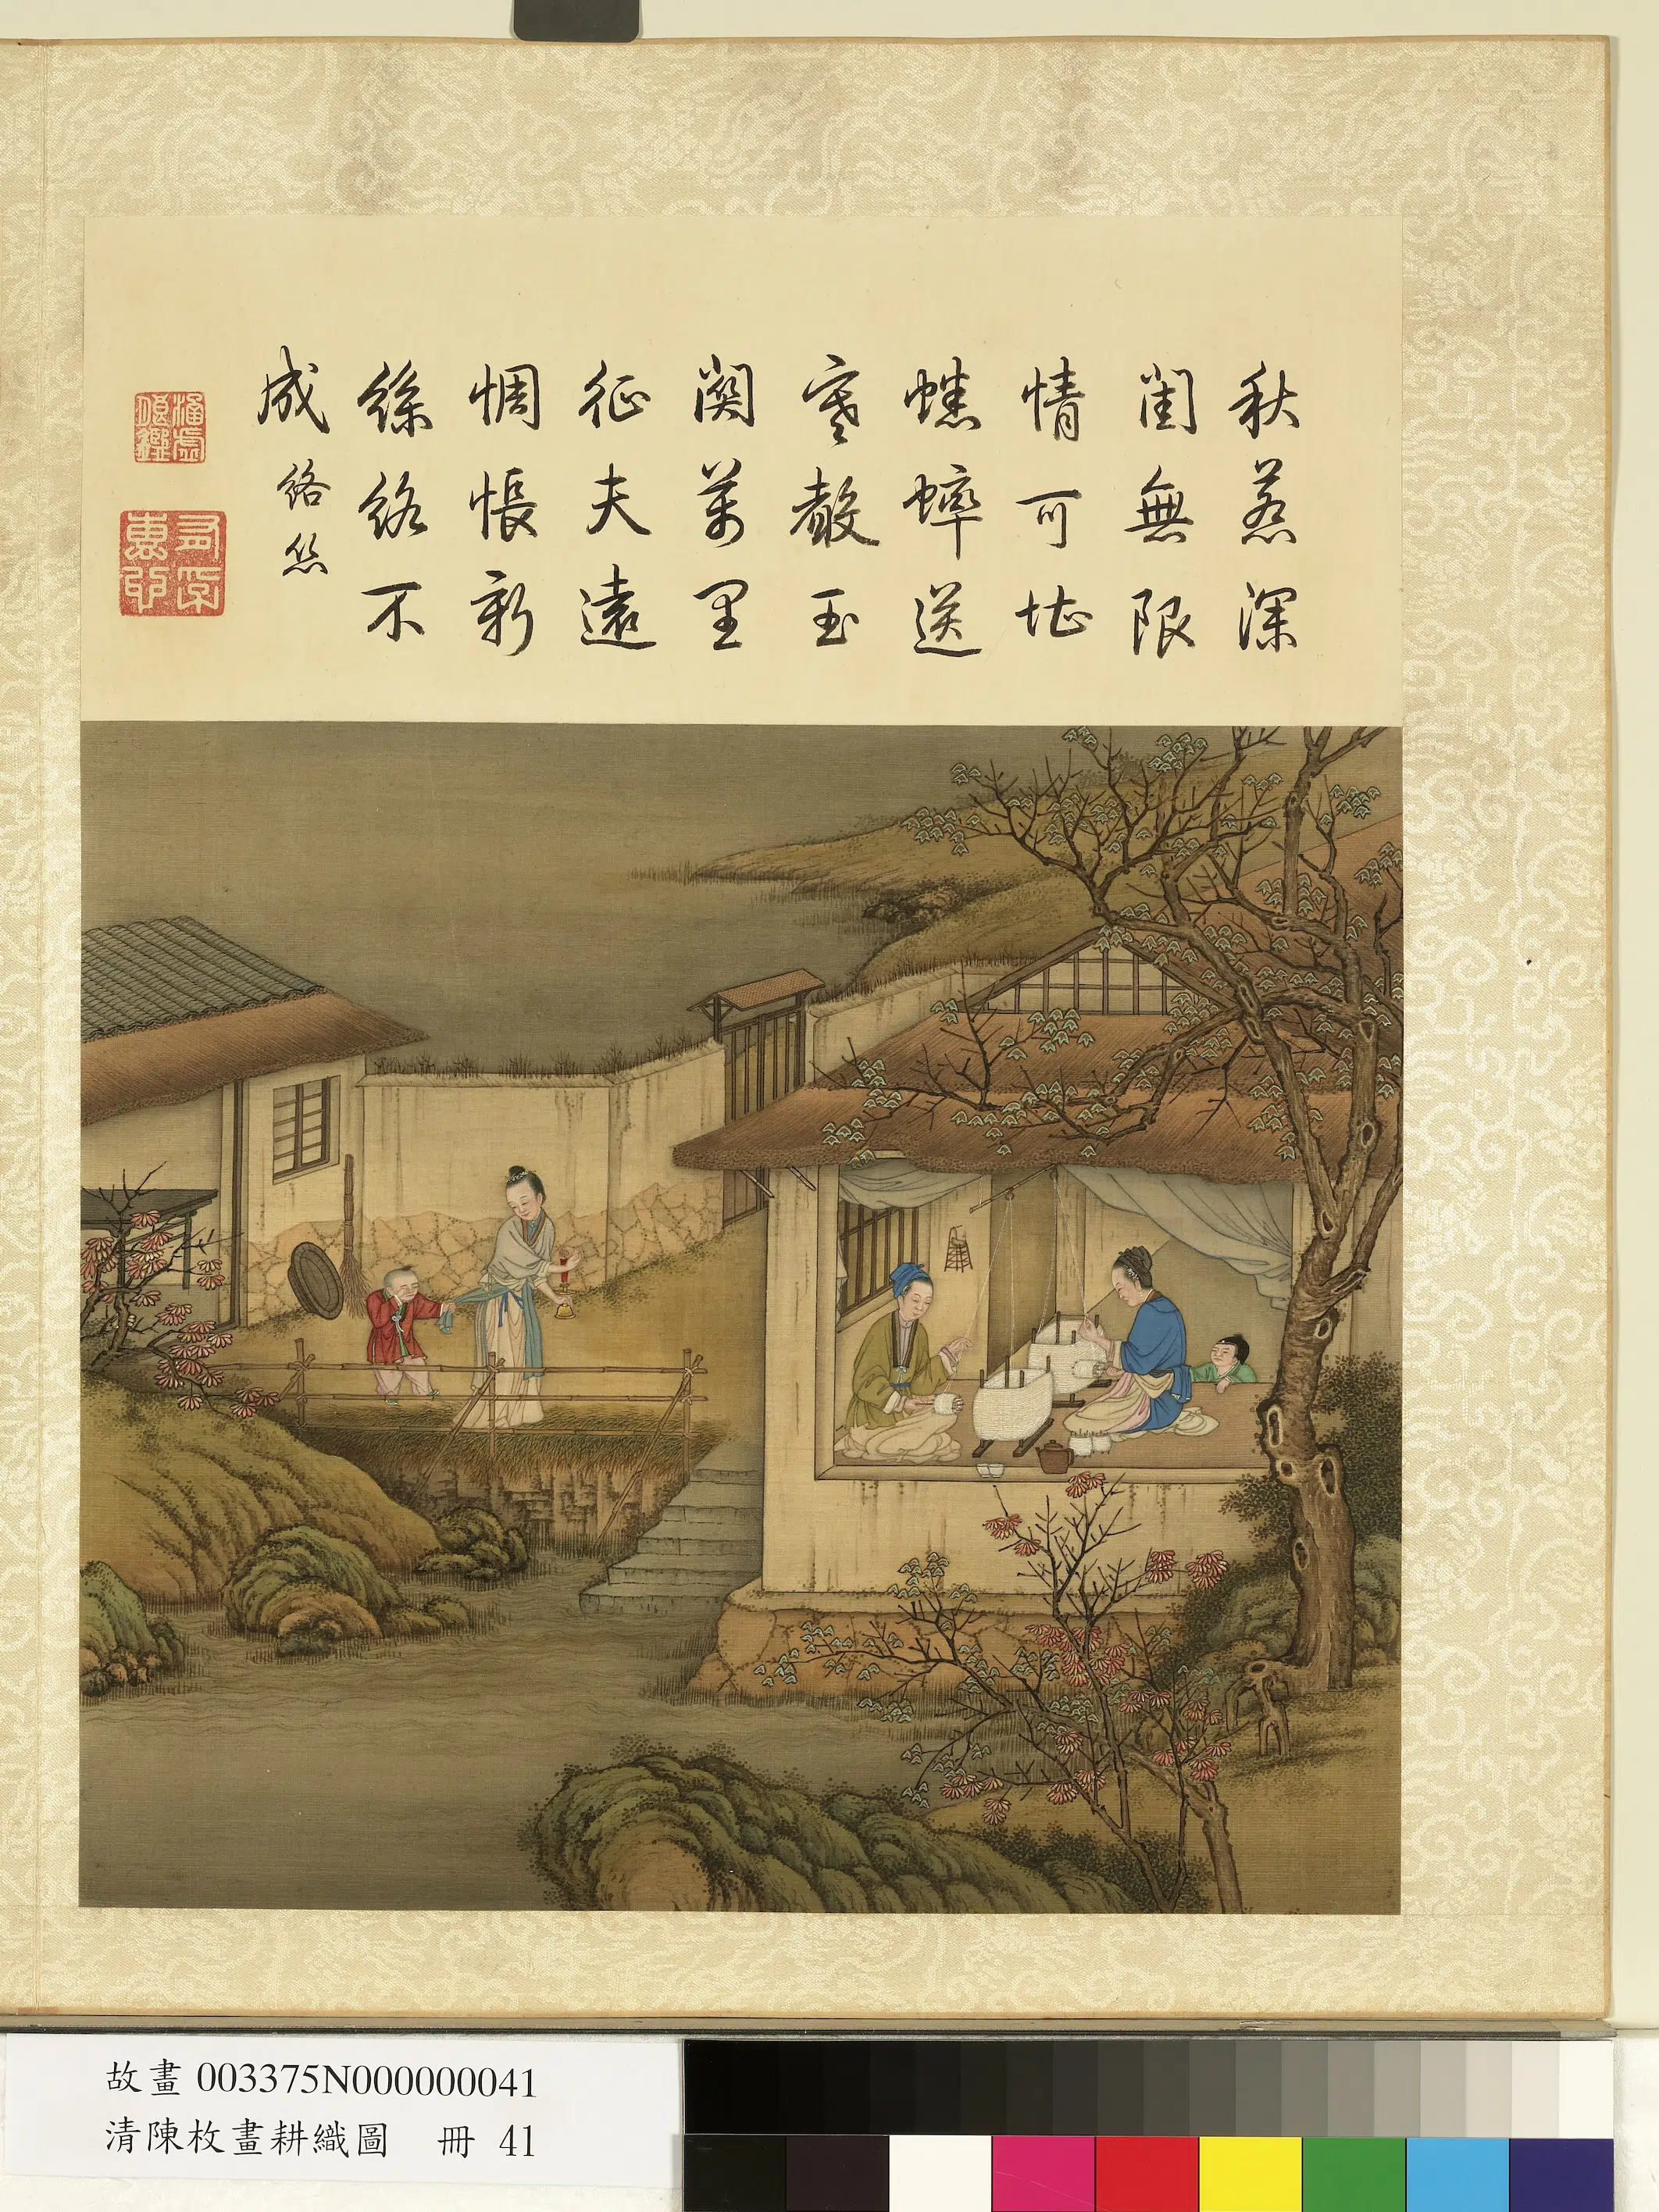 秋惹深
閨無限
情可堪
蟋蟀送
寒聲玉
關萬里
征夫遠
惆悵新
絲絡不
成 絡絲
故畫 003375N000000041
清陳枚畫耕織圖 冊 41